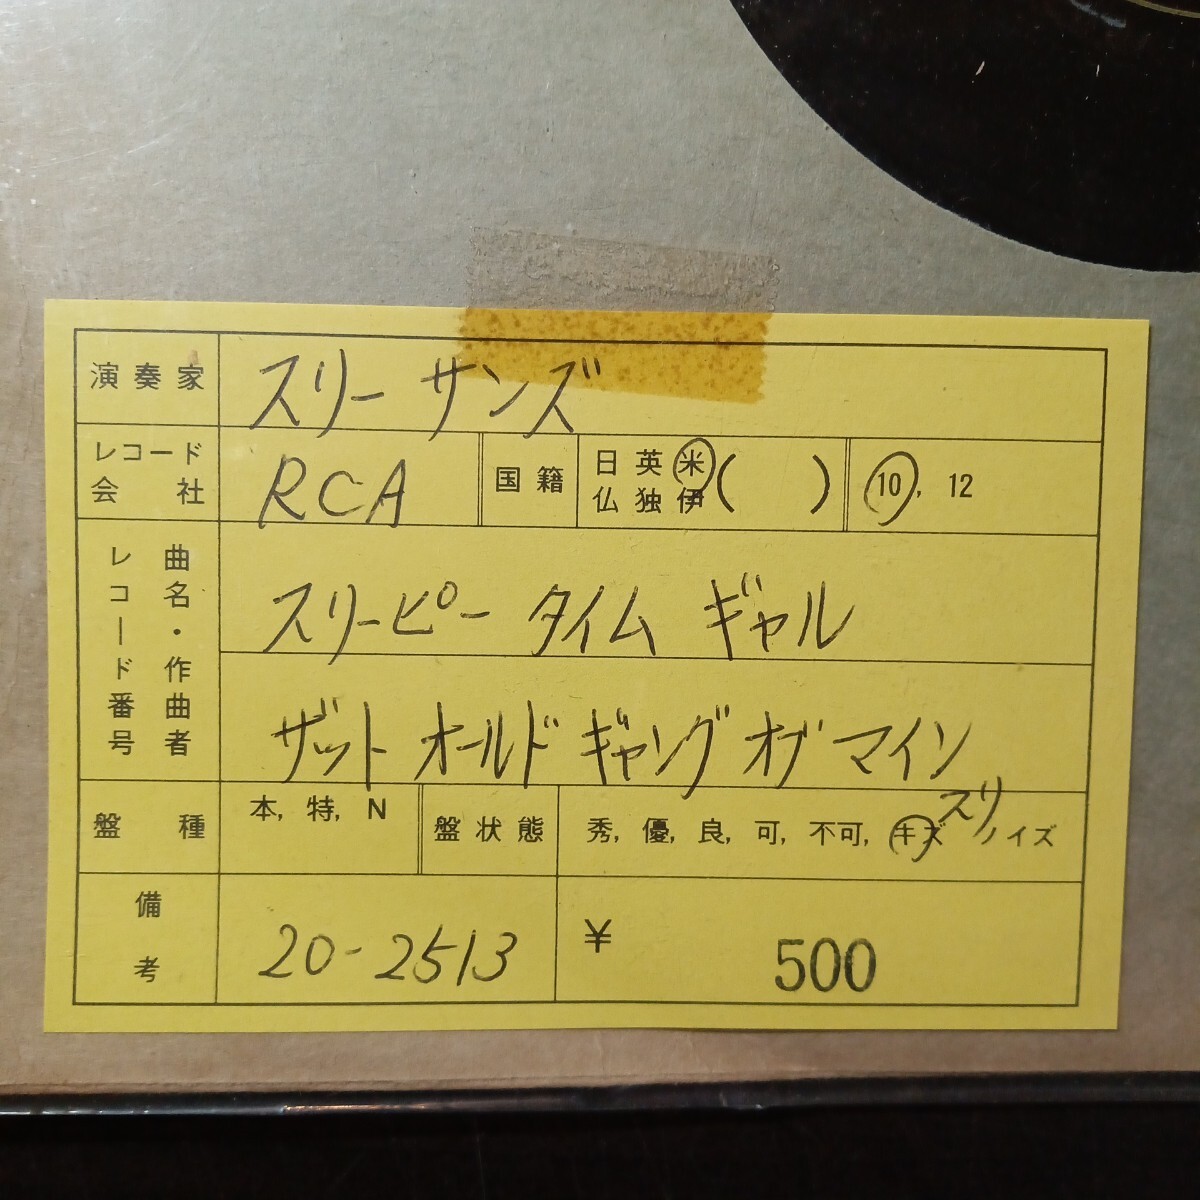 演奏家 スリー サンズ
レコード会社 RCA 国籍 日 英 米 ( ) 10, 12
仏 独 伊
レコード番号 曲名・作曲者 スリーピー タイム ギャル
ザット オールド ギャング オブ マイン
盤種 本, 特, N 盤状態 秀, 優, 良, 可, 不可, キズ スリ ノイズ
備考 20-2513 ¥ 500